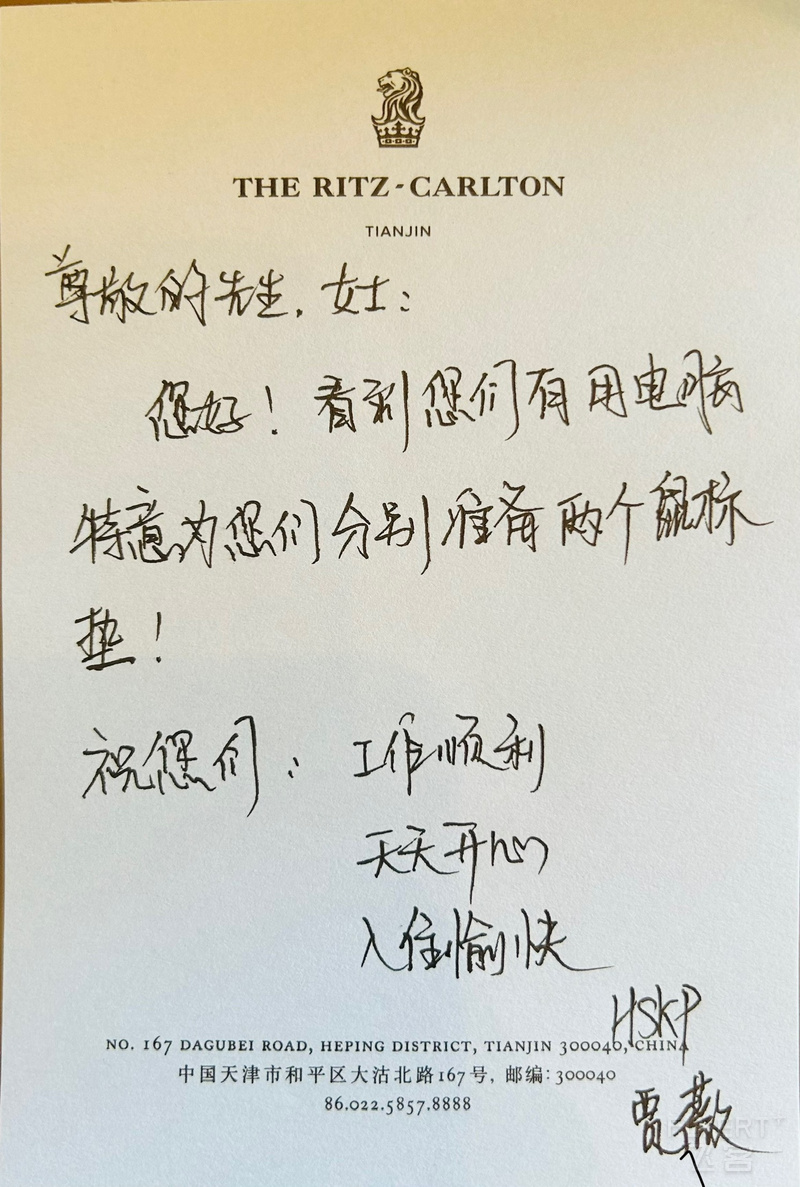 THE RITZ-CARLTON
TIANJIN
尊敬的先生、女士：
您好！看到您们有用电脑
特意为您们分别准备两个鼠标
垫！
祝您们：工作顺利
天天开心
入住愉快
HSKP
NO. 167 DAGUBEI ROAD, HEPING DISTRICT, TIANJIN 300040, CHINA
中国天津市和平区大沽北路167号, 邮编: 300040
86.022.5857.8888
贾薇